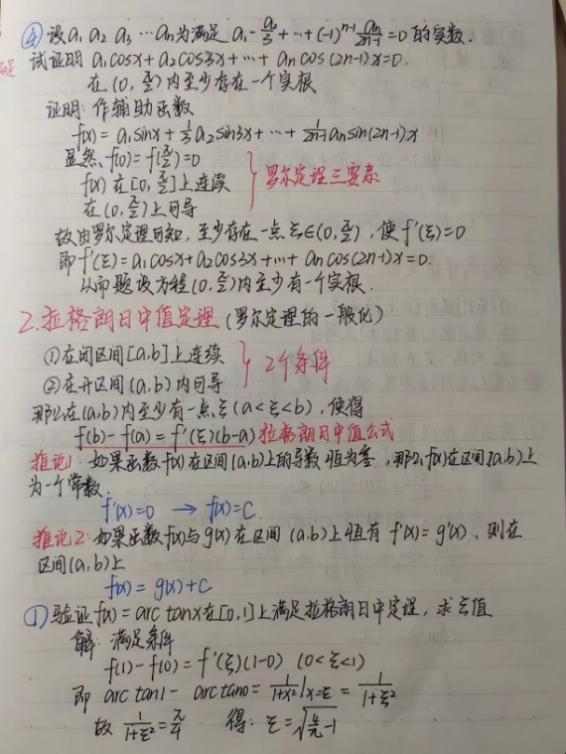 ④ 设a₁ a₂ a₃ …aₙ为满足 a₁-a₂/3+…+(-1)ⁿ⁻¹ aₙ/(2n-1)=0 的实数.
试证明 a₁cosx+a₂cos3x+…+aₙcos(2n-1)x=0.
在(0,π/2)内至少存在一个实根
证明:作辅助函数
f(x)=a₁sinx+1/3 a₂sin3x+…+1/(2n-1) aₙsin(2n-1)x
显然,f(0)=f(π/2)=0
f(x)在[0,π/2]上连续 } 罗尔定理三要素
在(0,π/2)上可导
故由罗尔定理可知,至少存在一点ξ∈(0,π/2),使f'(ξ)=0
即f'(ξ)=a₁cosx+a₂cos3x+…+aₙcos(2n-1)x=0.
从而题设方程(0,π/2)内至少有一个实根.
2.拉格朗日中值定理(罗尔定理的一般化)
①在闭区间[a,b]上连续 } 2个条件
②在开区间(a,b)内可导
那么在(a,b)内至少有一点ξ(a<ξ<b),使得
f(b)-f(a)=f'(ξ)(b-a) 拉格朗日中值公式
推论1:如果函数f(x)在区间(a,b)上的导数恒为零,那么f(x)在区间(a,b)上
为一个常数.
f'(x)=0 → f(x)=C
推论2:如果函数f(x)与g(x)在区间(a,b)上恒有f'(x)=g'(x),则在
区间(a,b)上
f(x)=g(x)+C
①验证f(x)=arc tanx在[0,1]上满足拉格朗日中定理,求ξ值
解:满足条件
f(1)-f(0)=f'(ξ)(1-0) (0<ξ<1)
即 arc tan1- arc tan0=1/(1+x²)|x=ξ=1/(1+ξ²)
故 1/(1+ξ²)=π/4 得:ξ=√(4/π-1)